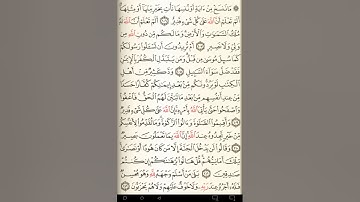 مَا نَنسَخْ مِنْ ءَايَةٍ أَوْ نُنسِهَا نَأْتِ بِخَيْرٍ مِّنْهَا أَوْ مِثْلِهَا
أَلَمْ تَعْلَمْ أَنَّ اللَّهَ عَلَىٰ كُلِّ شَىْءٍ قَدِيرٌ أَلَمْ تَعْلَمْ أَنَّ اللَّهَ لَهُ
مُلْكُ السَّمَٰوَٰتِ وَالْأَرْضِ وَمَا لَكُم مِّن دُونِ اللَّهِ مِن
وَلِىٍّ وَلَا نَصِيرٍ أَمْ تُرِيدُونَ أَن تَسْـَٔلُوا رَسُولَكُمْ
كَمَا سُئِلَ مُوسَىٰ مِن قَبْلُ وَمَن يَتَبَدَّلِ الْكُفْرَ بِالْإِيمَٰنِ
فَقَدْ ضَلَّ سَوَاءَ السَّبِيلِ وَدَّ كَثِيرٌ مِّنْ أَهْلِ
الْكِتَٰبِ لَوْ يَرُدُّونَكُم مِّن بَعْدِ إِيمَٰنِكُمْ كُفَّارًا حَسَدًا
مِّنْ عِندِ أَنفُسِهِم مِّن بَعْدِ مَا تَبَيَّنَ لَهُمُ الْحَقُّ فَاعْفُوا
وَاصْفَحُوا حَتَّىٰ يَأْتِىَ اللَّهُ بِأَمْرِهِ إِنَّ اللَّهَ عَلَىٰ كُلِّ شَىْءٍ قَدِيرٌ
وَأَقِيمُوا الصَّلَوٰةَ وَءَاتُوا الزَّكَوٰةَ وَمَا تُقَدِّمُوا لِأَنفُسِكُم
مِّنْ خَيْرٍ تَجِدُوهُ عِندَ اللَّهِ إِنَّ اللَّهَ بِمَا تَعْمَلُونَ بَصِيرٌ
وَقَالُوا لَن يَدْخُلَ الْجَنَّةَ إِلَّا مَن كَانَ هُودًا أَوْ نَصَٰرَىٰ
تِلْكَ أَمَانِيُّهُمْ قُلْ هَاتُوا بُرْهَٰنَكُمْ إِن كُنتُمْ
صَٰدِقِينَ بَلَىٰ مَنْ أَسْلَمَ وَجْهَهُ لِلَّهِ وَهُوَ مُحْسِنٌ
فَلَهُ أَجْرُهُ عِندَ رَبِّهِ وَلَا خَوْفٌ عَلَيْهِمْ وَلَا هُمْ يَحْزَنُونَ